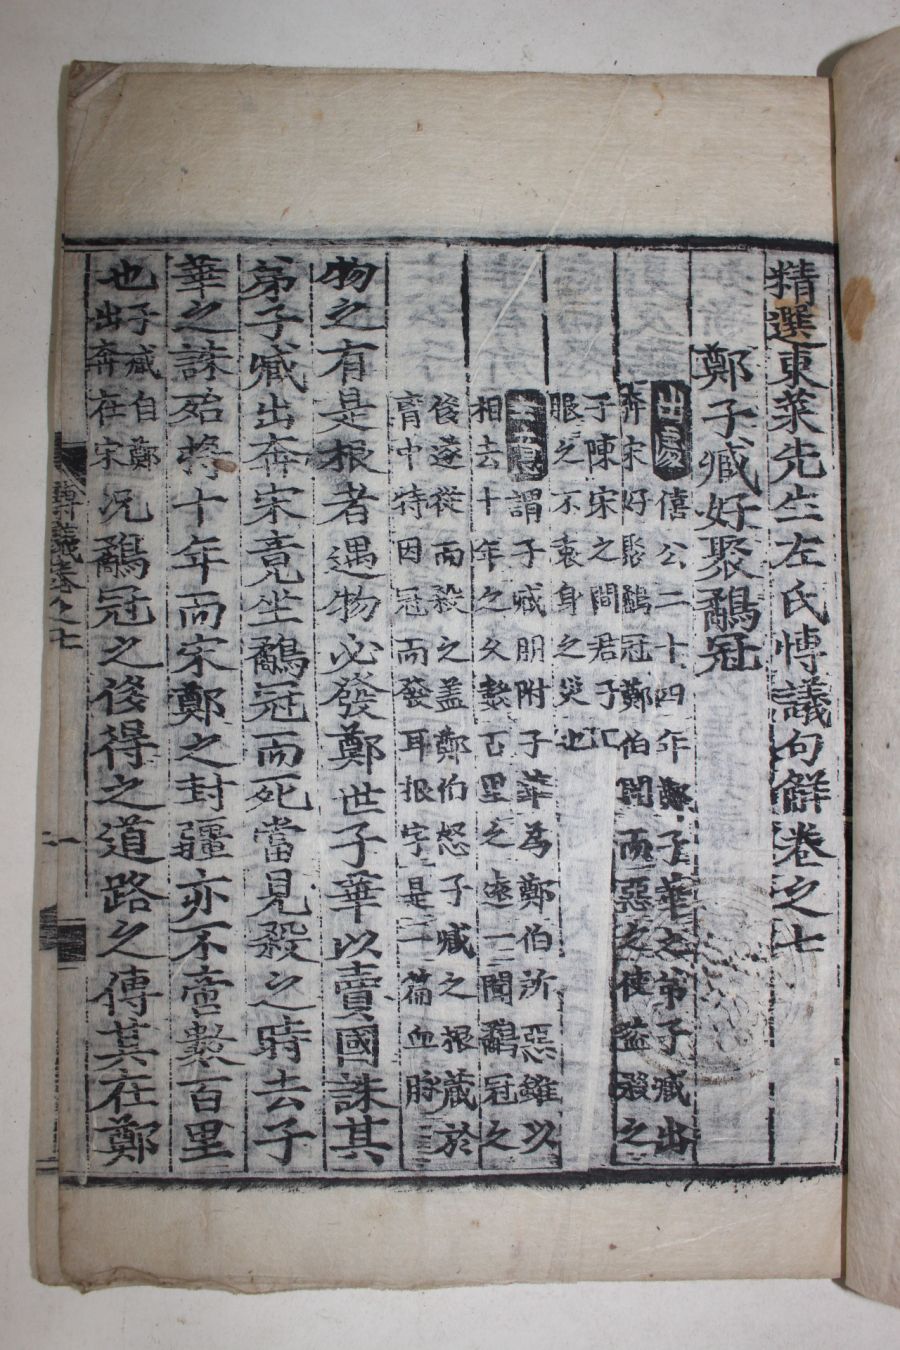 精選東萊先生左氏博議句解卷之七
鄭子臧好聚鷸冠
出處 僖公二十四年鄭子華之弟子臧出
奔宋好聚鷸冠鄭伯聞而惡之使盜殺之
于陳宋之間君子
服之不衷身之災也
主意 謂子臧朋附子華為鄭伯所惡雖以
相去十年之久數百里之遠一聞鷸冠之
後遂從而殺之盖鄭伯怒子臧之根蔵於
胷中特因冠而發耳根字是一篇血脉
物之有是根者遇物必發鄭世子華以賣國誅其
弟子臧出奔宋竟坐鷸冠而死當見殺之時去子
華之誅殆將十年而宋鄭之封疆亦不啻數百里
也子臧自鄭
出奔在宋
况鷸冠之侈得之道路之傳其在鄭
博議卷之七
一